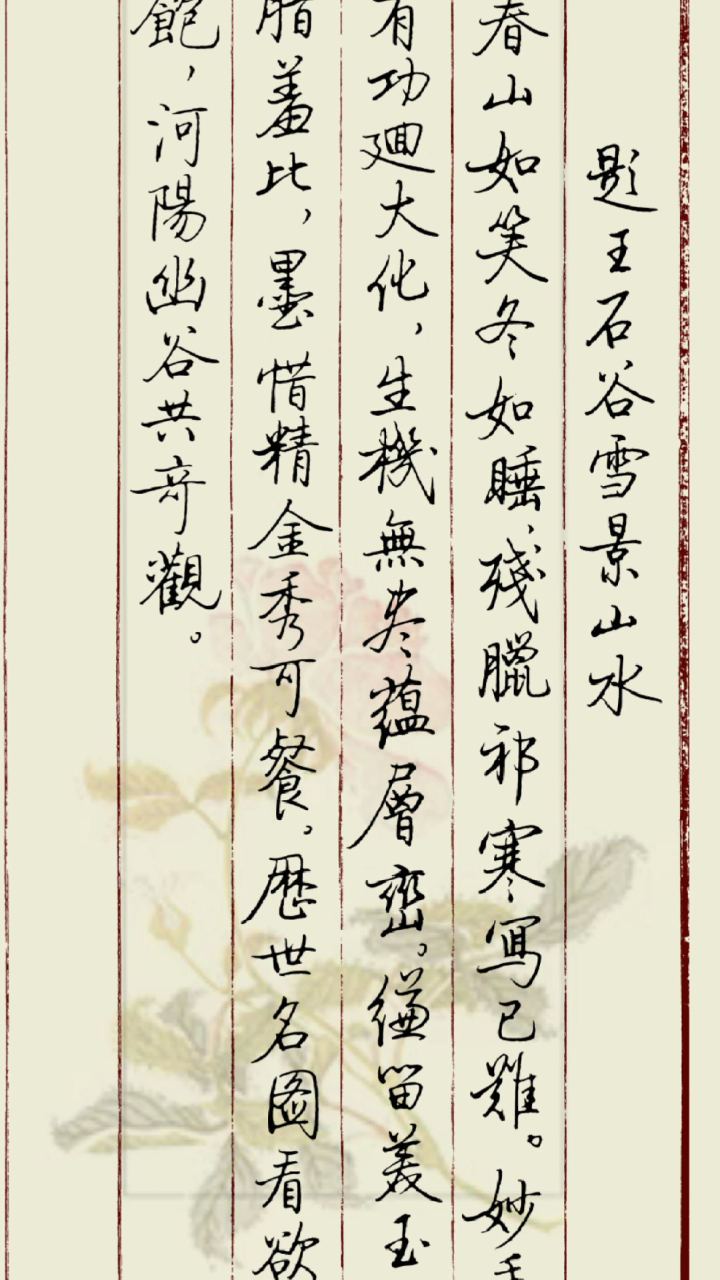 題王石谷雪景山水
春山如笑冬如睡，殘臘祁寒寫已難。妙手
有功廻大化，生機無尽蘊層巒。縑留美玉
脂羞比，墨惜精金秀可餐。歷世名图看欲
飽，河陽幽谷共奇觀。